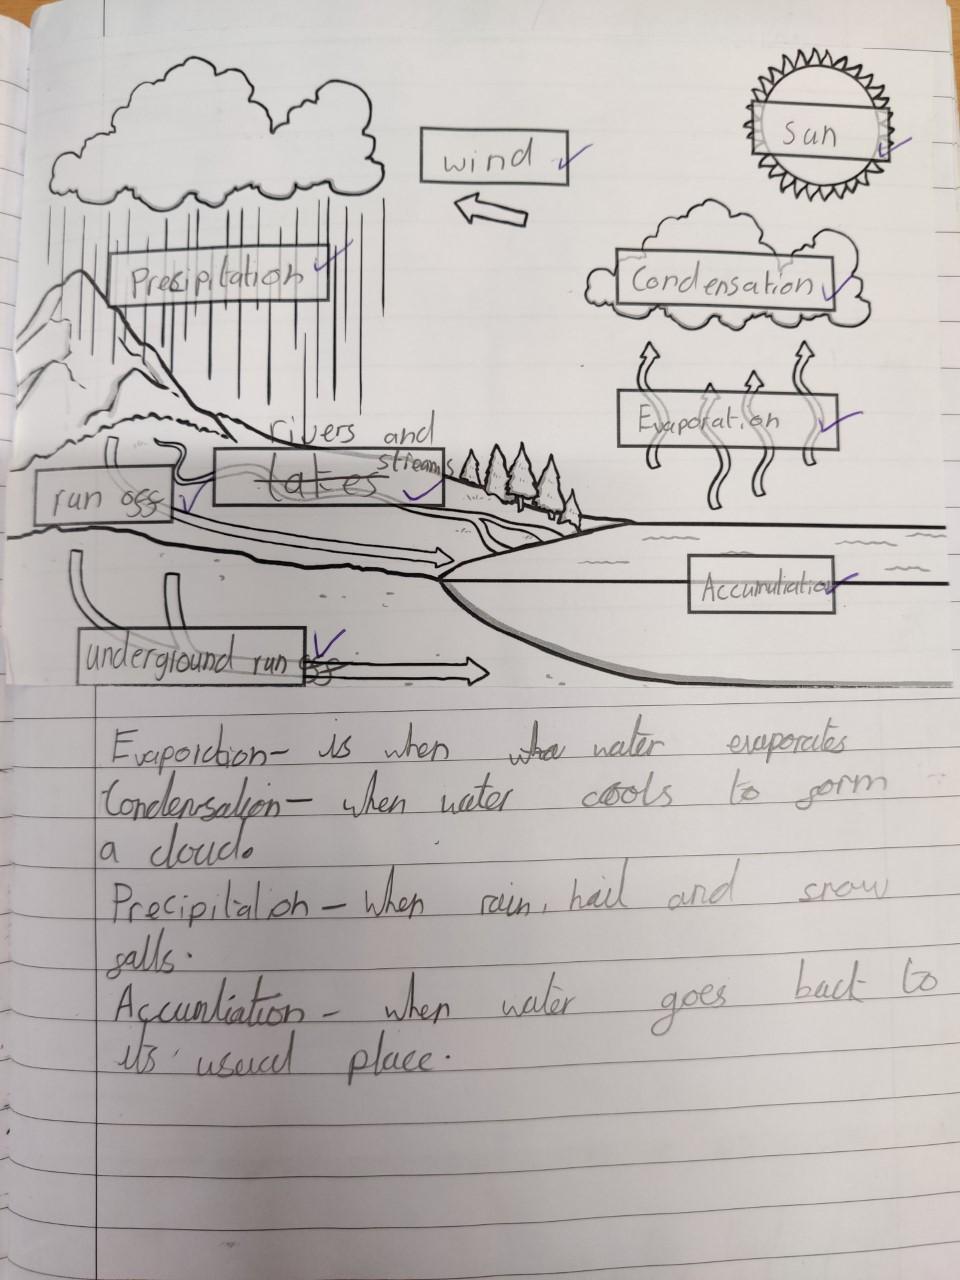 wind
Sun
Precipitation
Condensation
Evaporation
rivers and
streams
lakes
run off
Accumuliation
underground run off
Evaporation - is when water evaporates
Condensation - when water cools to form
a cloud.
Precipitation - when rain, hail and snow
falls.
Accumliation - when water goes back to
its usual place.